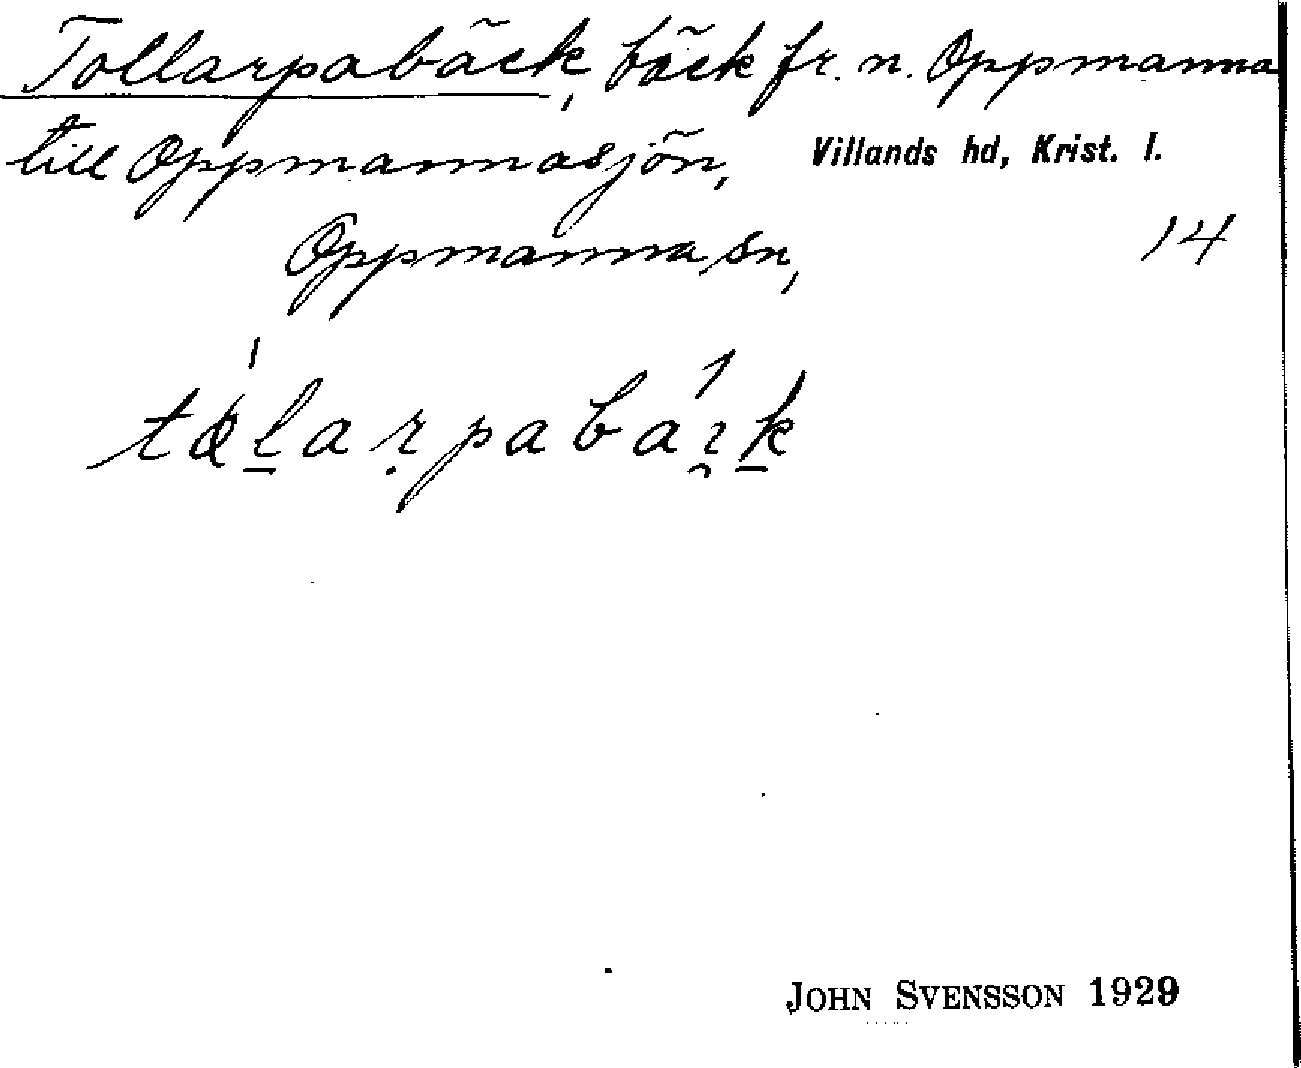 Tollarpabäck, bäck fr. n. Oppmanna
till Oppmannasjön, Villands hd, Krist. l.
Oppmanna sn, 14
JOHN SVENSSON 1929